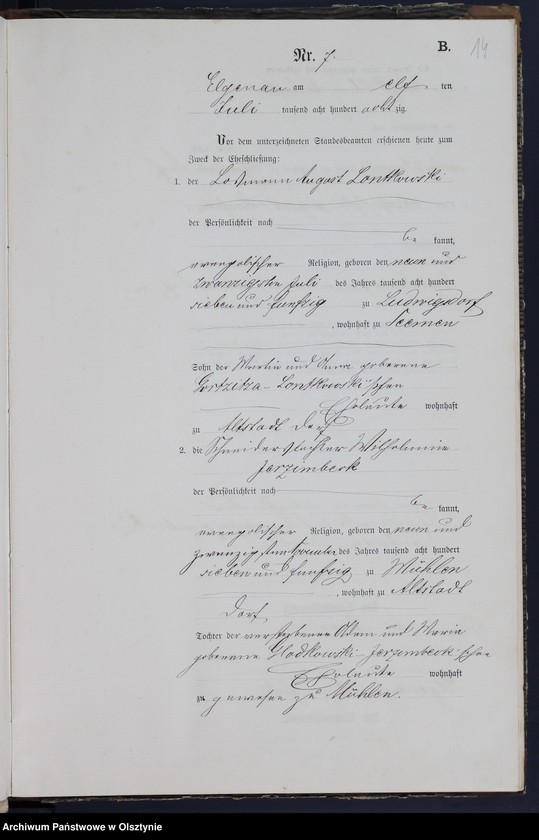 B.
14
Nr. 7.
Elgenau am elf ten
Juli tausend acht hundert acht zig.
Vor dem unterzeichneten Standesbeamten erschienen heute zum
Zweck der Eheschließung:
1. der Losmann August Lontkowski
der Persönlichkeit nach
be kannt,
evangelischer Religion, geboren den neun und
zwanzigsten Juli des Jahres tausend acht hundert
sieben und funfzig zu Ludwigsdorf
, wohnhaft zu Seemen
Sohn der Martin und geborene
Gortzitza - Lontkowski'schen
Eheleute wohnhaft
zu Altstadt Dorf
2. die Schneidertochter Wilhelmine
Jerzimbeck
der Persönlichkeit nach
be kannt,
evangelischer Religion, geboren den neun und
zwanzigsten des Jahres tausend acht hundert
sieben und funfzig zu Mühlen
, wohnhaft zu Altstadt
Dorf,
Tochter der verstorbenen Adam und Maria
geborene Gladkowski - Jerzimbeck'schen
Eheleute wohnhaft
zu gewesen zu Mühlen.
Archiwum Państwowe w Olsztynie